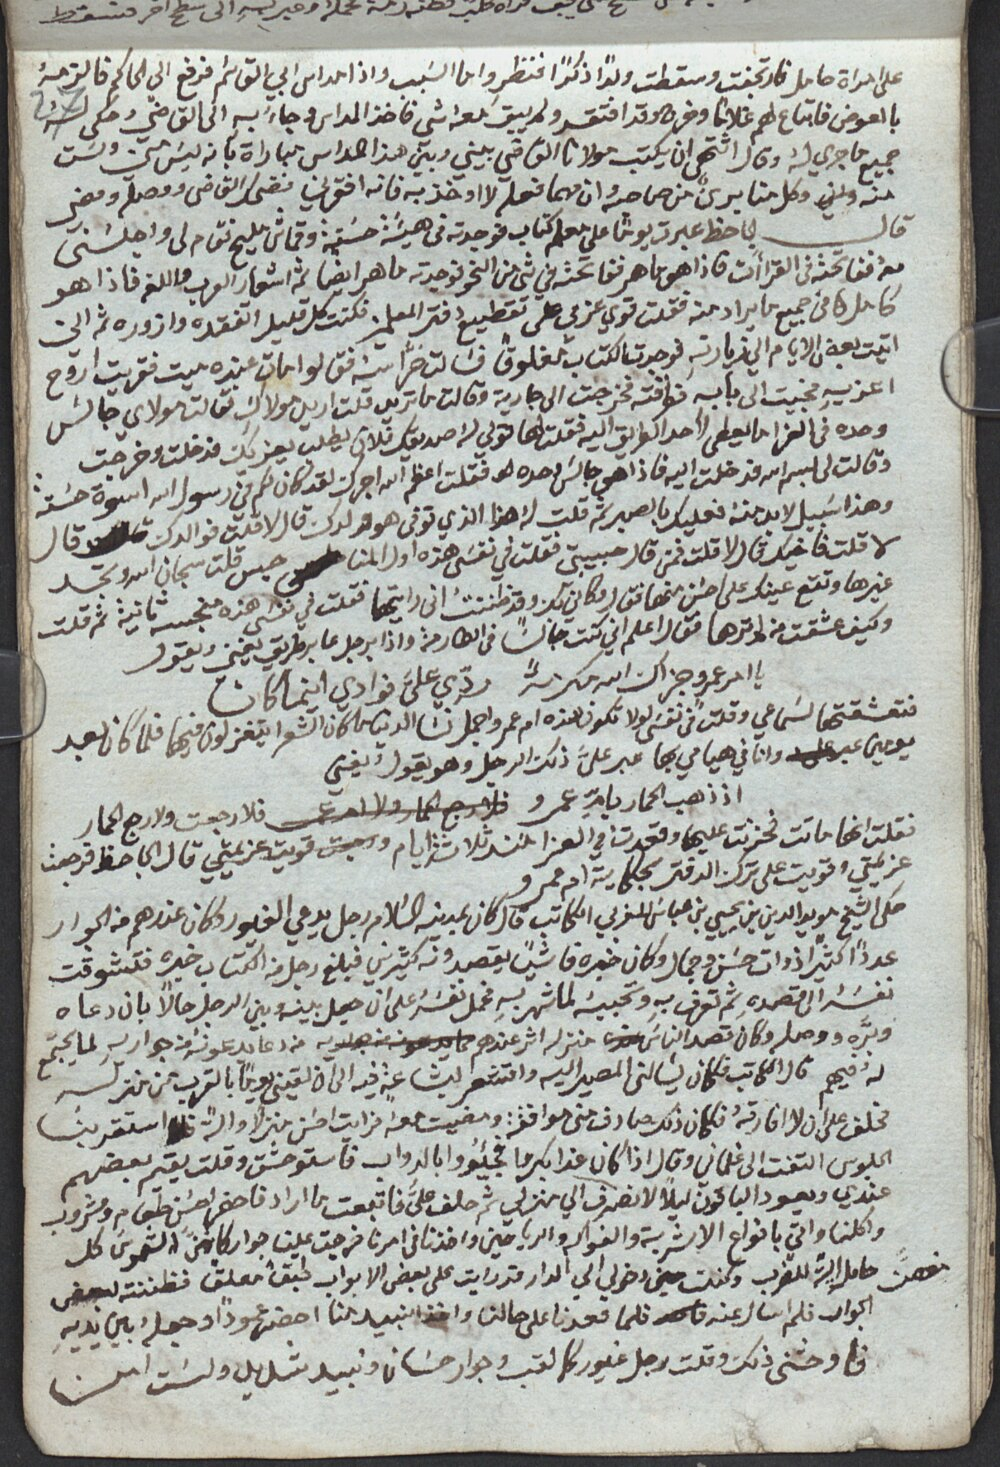 على امراة حامل فارتجنت وسقطت ولدًا ذكرًا فنظروا ما السبب واذا مداس ابي القاسم فرفع الى الحاكم فالزمهُ
بالعوض فابتاع لهم غلامًا وخرج وقد افتقر ولم يبق معهُ شي فاخذ المداس وجاء به الى القاضي وحكى لهُ
جميع ما جري لهُ وقال اشتهى ان يكتب مولانا القاضي بيني وبين هذا المداس مباراة بانه ليس مني ولست
منه وان كل منا بريءً من صاحبهُ وان مهما فعلهُ لا اوخذ به فانه افقرني فضحك القاضي ووصله ومضى
قال الجاحظ عبرت يومًا على معلم كتاب فوجدته في هيئة حسنة وقماش مليح فقام لي واجلسني
معهُ ففاتحتهُ في القراات فاذا هو ماهر ففاتحتهُ في شي من النحو فوجدته ماهر ايضًا ثم اشعار العرب واللغه فاذا هو
كامل في جميع ما يراد منه فقلت قوي عزمي على تقطيع دفتر المعلمين فكنت كل قليل اتفقده وازوره ثم اني
اتيت بعض الايام الى زيارته فوجدت الكتاب مغلوقًا فسالت جرانه فقالوا مات عنده ميت فقريت اروح
اعزيه فجيت الى بابه فطرقته فخرجت الى جارية وقالت ما تريد قلت اريد مولاك فقالت مولاي جالس
وحده في العزا ما يعطي لاحد الطريق اليه فقلت لها قولي لهُ صديقك فلان يطلب يعزيك فدخلت وخرجت
وقالت لي بسم الله فدخلت اليه فاذا هو جالس وحده فقلت اعظم الله اجرك لقد كان لكم في رسول الله اسوة حسنة
وهذا سبيل لابد منهُ فعليك بالصبر ثم قلت لهُ هذا الذي توفى هو ولدك قال لا قلت فوالدك قال
لا قلت فاخيك قال لا قلت فمن قال حبيبتي فقلت في نفسي هذه اول المناحس قلت سبحان الله وتجد
غيرها وتقع عينك على احسن منها فقال وكاني بك وقد ظننت اني رايتها فقلت في نفسي هذه منحسه ثانية ثم قلت
وكيف عشقت من لم ترها فقال اعلم اني كنت جالسًا في الطارمة واذا برجل عابر طريق يغني ويقول
يا ام عمرو جزاك الله مكرمةً ردّي عليّ فوادي اينما كان
فتعشقتها لسماعي وقلت في نفسي لولا تكون هذه ام عمرو اجمل نسا الدنيا ما كان الشعرا يتغزلون فيها فلما كان بعد
يومين عبر وانا في هيامي بها عبر عليّ ذلك الرجل وهو يقول ويغني
اذ ذهب الحمار بام عمرو فلا رجعت ولا رجع الحمار
فقلت انها ماتت فحزنت عليها وقعدت في العزا منذ ثلاثة ايام قويت عزيمتي قال الجاحظ فرجعت
عزيمتي وقويت على ترك الدفتر بحكاية ام عمرو
حكى الشيخ مويد الدين بن يحيى بن عباس المغربي الكاتب قال كان بمدينه السلام رجل يدعي الغيور وكان عندهم من الجوار
عددًا كثيرًا ذوات حسن وجمال وكان خبره فاشيًا يقصدونه كثيرين فبلغ رجل من الكتاب خبره فتشوقت
نفسهُ الى قصده ثم تعرف به وتجنبهُ لما شهر به فحمل نفسهُ على ان حيل بينه وبين الرجل حالًا بان دعاه
وبرّه ووصله وكان قصد الناس منزله اثر عندهم من دعا يدعونهُ من جواريه لما يجتمع
لهُ فيهم قال الكاتب فكان يسالني المصير اليه وامتنع لما شاع فيه الى ان لقيني يومًا بالقرب من منزله
فحلف على ان لا افارقهُ فكان ذلك صادف مني موافقة ومضيت معهُ فرايت احسن منزلًا والة استقر بنا
الجلوس التفت الى غلماني وقال اذا كان غدا بكرا فجيئوا بالدواب فاستوحشت وقلت يقيم بعضهم
عندي ويعود الباقون ليلًا لانصرف الى منزلي ثم حلف عليّ فاتبعت ما اراد فاحضر احسن طعام ومشروب
واكلنا واتى بانواع الاشربة والفواكه والرياحين واخذنا في امرنا فخرجت علينا جوار كانهن الشموس كل
منهنّ حاملة الة للضرب وكنت حين دخولي الى الدار قد رايت على بعض الابواب طبقًا معلقًا فظننته لبعض
الجوار فلم اسال عنه فلما قعدنا على حالنا واخذ النبيذ منا احضر عمودًا وجعلهُ بين يديه
فاوحشني ذلك وقلت رجل غيور كالقب وجوار حسان ونبيذ شديد ولست امن